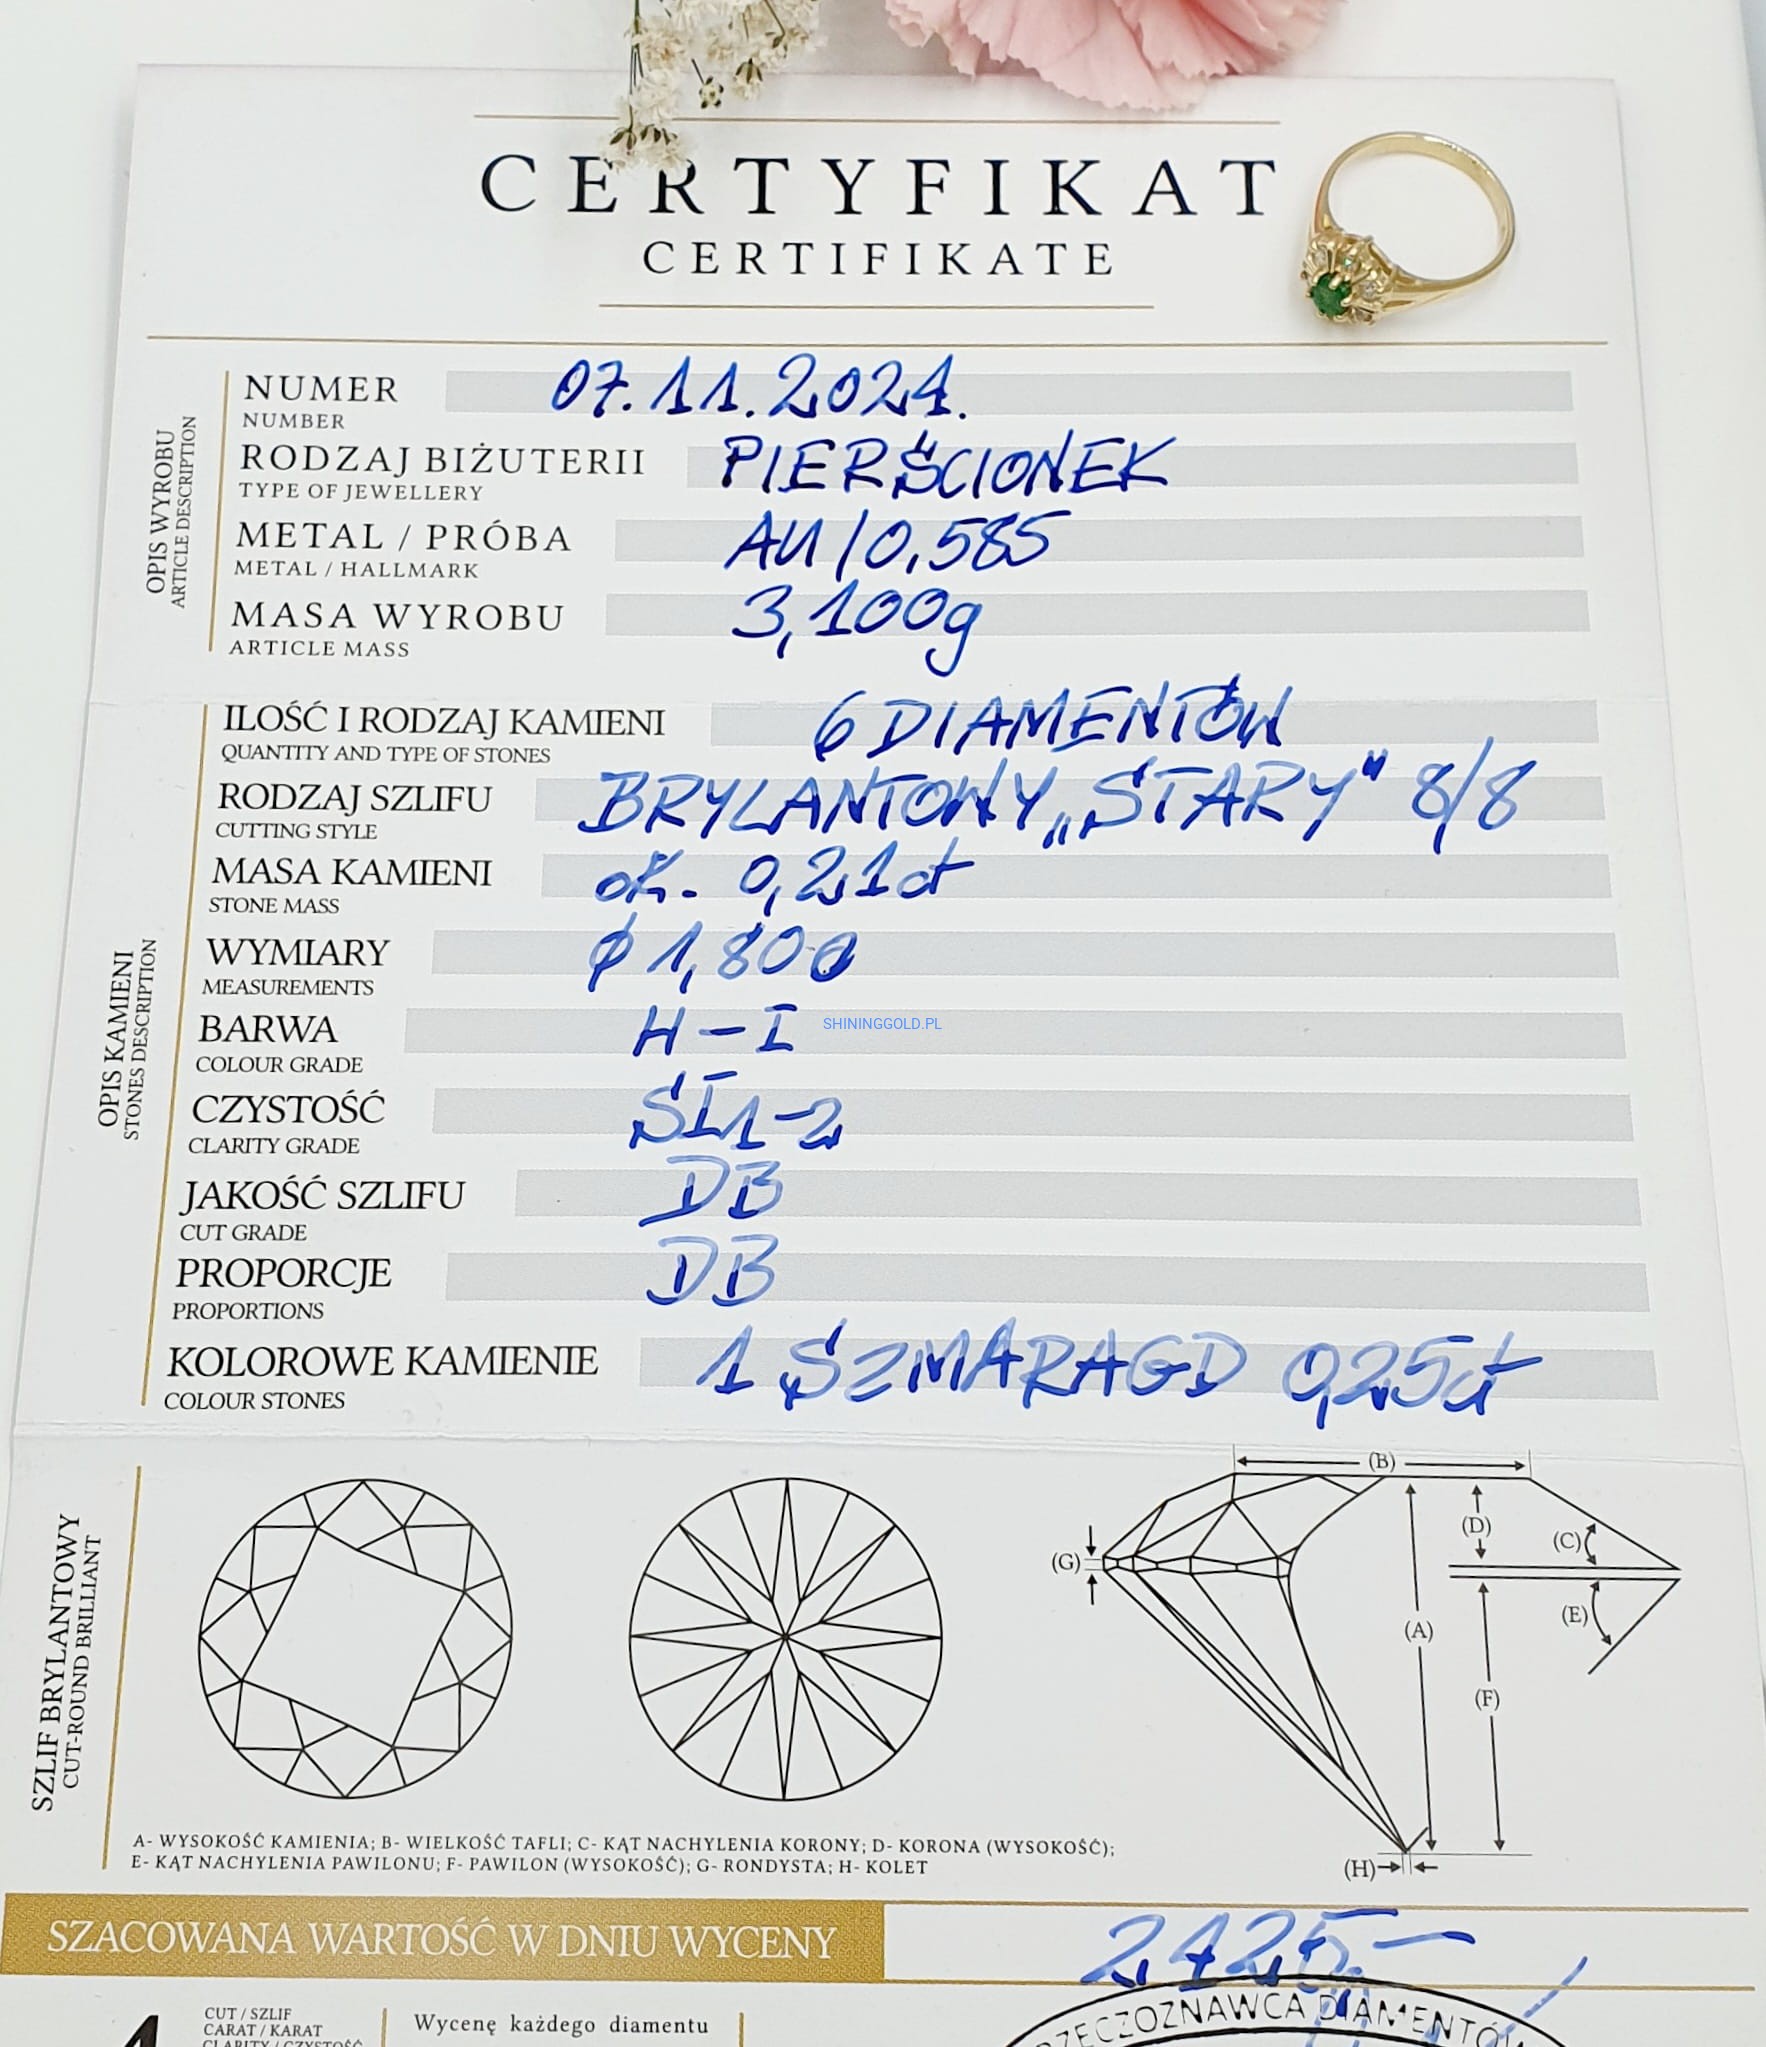 CERTYFIKAT
CERTIFIKATE
OPIS WYROBU
ARTICLE DESCRIPTION
NUMER 07.11.2024.
NUMBER
RODZAJ BIŻUTERII PIERŚCIONEK
TYPE OF JEWELLERY
METAL / PRÓBA AU/0,585
METAL / HALLMARK
MASA WYROBU 3,100g
ARTICLE MASS
OPIS KAMIENI
STONES DESCRIPTION
ILOŚĆ I RODZAJ KAMIENI 6 DIAMENTÓW
QUANTITY AND TYPE OF STONES
RODZAJ SZLIFU BRYLANTOWY „STARY" 8/8
CUTTING STYLE
MASA KAMIENI ok. 0,21ct
STONE MASS
WYMIARY ϕ 1,800
MEASUREMENTS
BARWA H-I SHININGGOLD.PL
COLOUR GRADE
CZYSTOŚĆ SI1-2
CLARITY GRADE
JAKOŚĆ SZLIFU DB
CUT GRADE
PROPORCJE DB
PROPORTIONS
KOLOROWE KAMIENIE 1 SZMARAGD 0,25ct
COLOUR STONES
SZLIF BRYLANTOWY
CUT-ROUND BRILLIANT
(B)
(D)
(C)
(G)
(E)
(A)
(F)
(H)
A- WYSOKOŚĆ KAMIENIA; B- WIELKOŚĆ TAFLI; C- KĄT NACHYLENIA KORONY; D- KORONA (WYSOKOŚĆ);
E- KĄT NACHYLENIA PAWILONU; F- PAWILON (WYSOKOŚĆ); G- RONDYSTA; H- KOLET
SZACOWANA WARTOŚĆ W DNIU WYCENY 2425.-
RZECZOZNAWCA DIAMENTÓW
CUT / SZLIF
CARAT / KARAT
CLARITY / CZYSTOŚĆ
Wycenę każdego diamentu